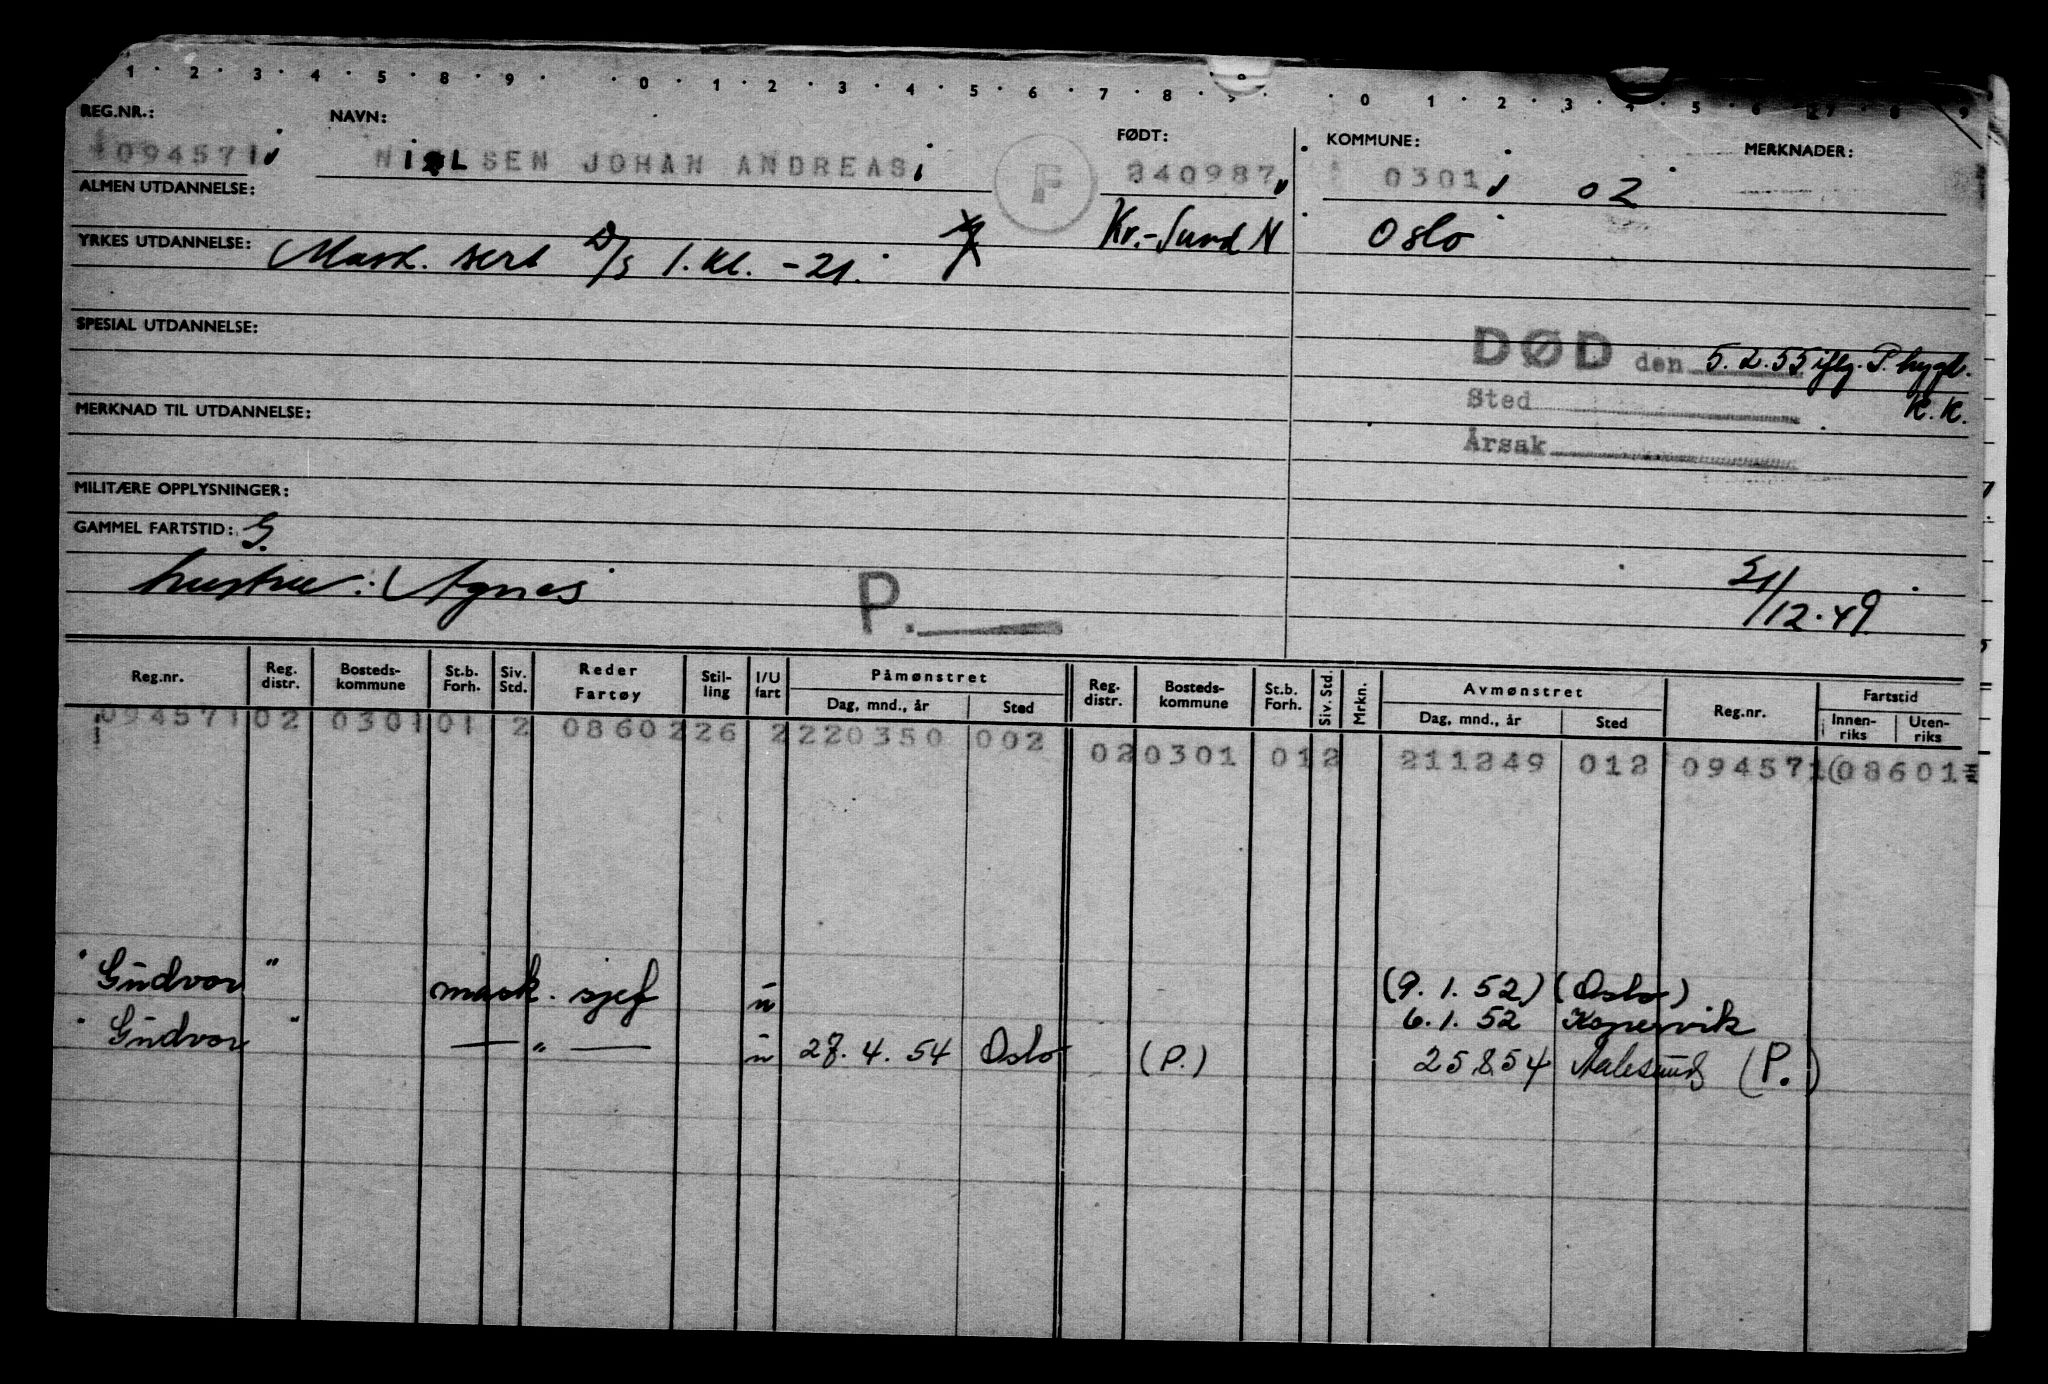 1 · 2 · 3 · 4 · 5 · 8 · 9 · · 0 · 1 · 2 · 3 · 4 · 5 · 6 · 7 · 8 · 9 · · 0 · 1 · 2 · 3 · 4 · 5 · 6 · 7 · 8 · 9
REG.NR.: NAVN: FØDT: KOMMUNE: MERKNADER:
094571 NIELSEN JOHAN ANDREAS F 240987 0301 02
ALMEN UTDANNELSE:
Kr.-Sund N Oslo
YRKES UTDANNELSE: Mask. sert D/S 1. kl. -21.
SPESIAL UTDANNELSE:
DØD den 5.2.55 iflg. P. hygd.
K.K.
Sted
MERKNAD TIL UTDANNELSE:
Årsak
MILITÆRE OPPLYSNINGER:
GAMMEL FARTSTID: G.
hustru: Agnes P. 21/12.49
Reg.nr. Reg. distr. Bosteds-kommune St.b. Forh. Siv. Std. Reder Fartøy Stil-ling I/U fart Påmønstret Dag, mnd., år Sted Reg. distr. Bosteds-kommune St.b. Forh. Siv. Std. Mrkn. Avmønstret Dag, mnd., år Sted Reg.nr. Fartstid Innen-riks Uten-riks
094571 02 0301 01 2 08602 26 2 220350 002
02 0301 01 2 211249 012 094571 08601
"Gudvor" mask. sjef u (9.1.52) (Oslo)
6.1.52 Kopervik
"Gudvor" — " — u 28.4.54 Oslo (P.) 25.8.54 Aalesund (P.)